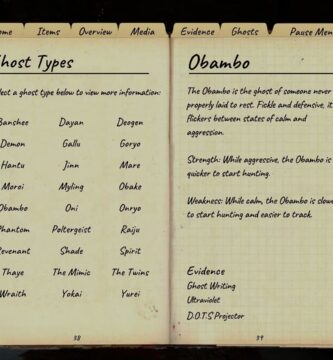 ome Items Overview Media Evidence Ghosts Pause Men
Ghost Types
lect a ghost type below to view more information:
Banshee Dayan Deogen
Demon Gallu Goryo
Hantu Jinn Mare
Moroi Myling Obake
Obambo Oni Onryo
Phantom Poltergeist Raiju
Revenant Shade Spirit
Thaye The Mimic The Twins
Wraith Yokai Yurei
38
Obambo
The Obambo is the ghost of someone never
properly laid to rest. Fickle and defensive, it
flickers between states of calm and
aggression.
Strength: While aggressive, the Obambo is
quicker to start hunting.
Weakness: While calm, the Obambo is slow
to start hunting and easier to track.
Evidence
Ghost Writing
Ultraviolet
D.O.T.S Projector
39